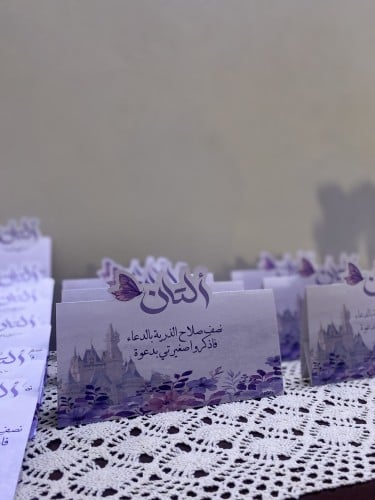 ألتان
نصف صلاح الذرية بالدعاء
فاذكروا صغيرتي بدعوة